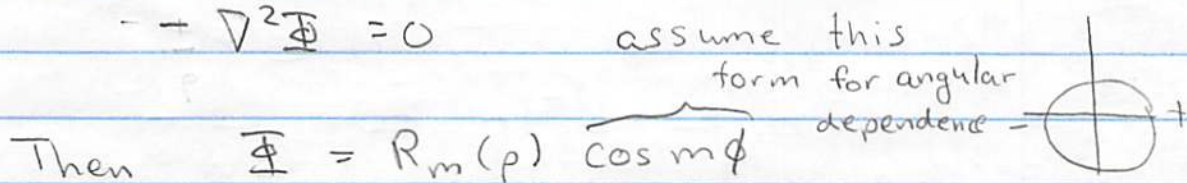 -- ∇²Φ = 0 assume this
form for angular
dependence - +
Then Φ = Rₘ(ρ) cos mϕ